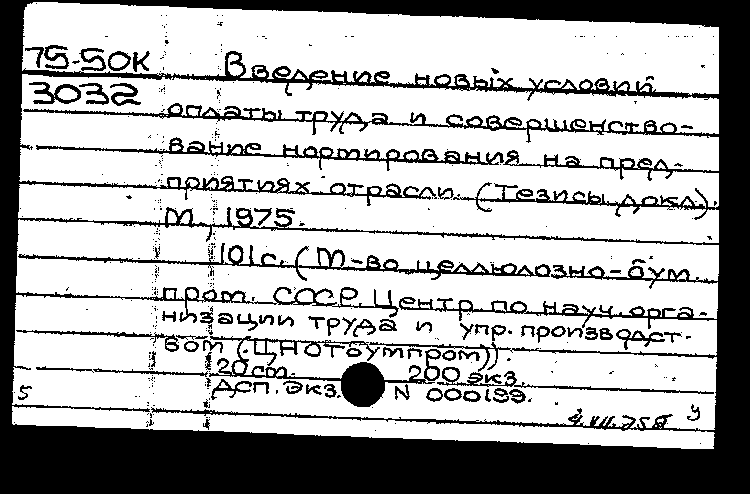 75-50К Введение новых условий
3032 оплаты труда и совершенство-
вание нормирования на пред-
приятиях отрасли. (Тезисы докл.).
М., 1975.
101 с. (М-во целлюлозно-бум.
пром. СССР. Центр по науч. орга-
низации труда и упр. производст-
вом (ЦНОТбумпром)).
20 см. 200 экз.
ДСП. Экз. N 000199.
5 у